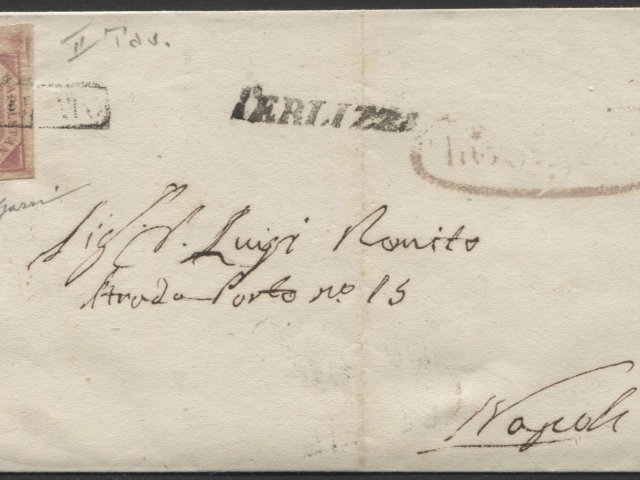 II Tav.
TERLIZZI
Sig. D. Luigi Romito
Strada Porto no. 15
Napoli